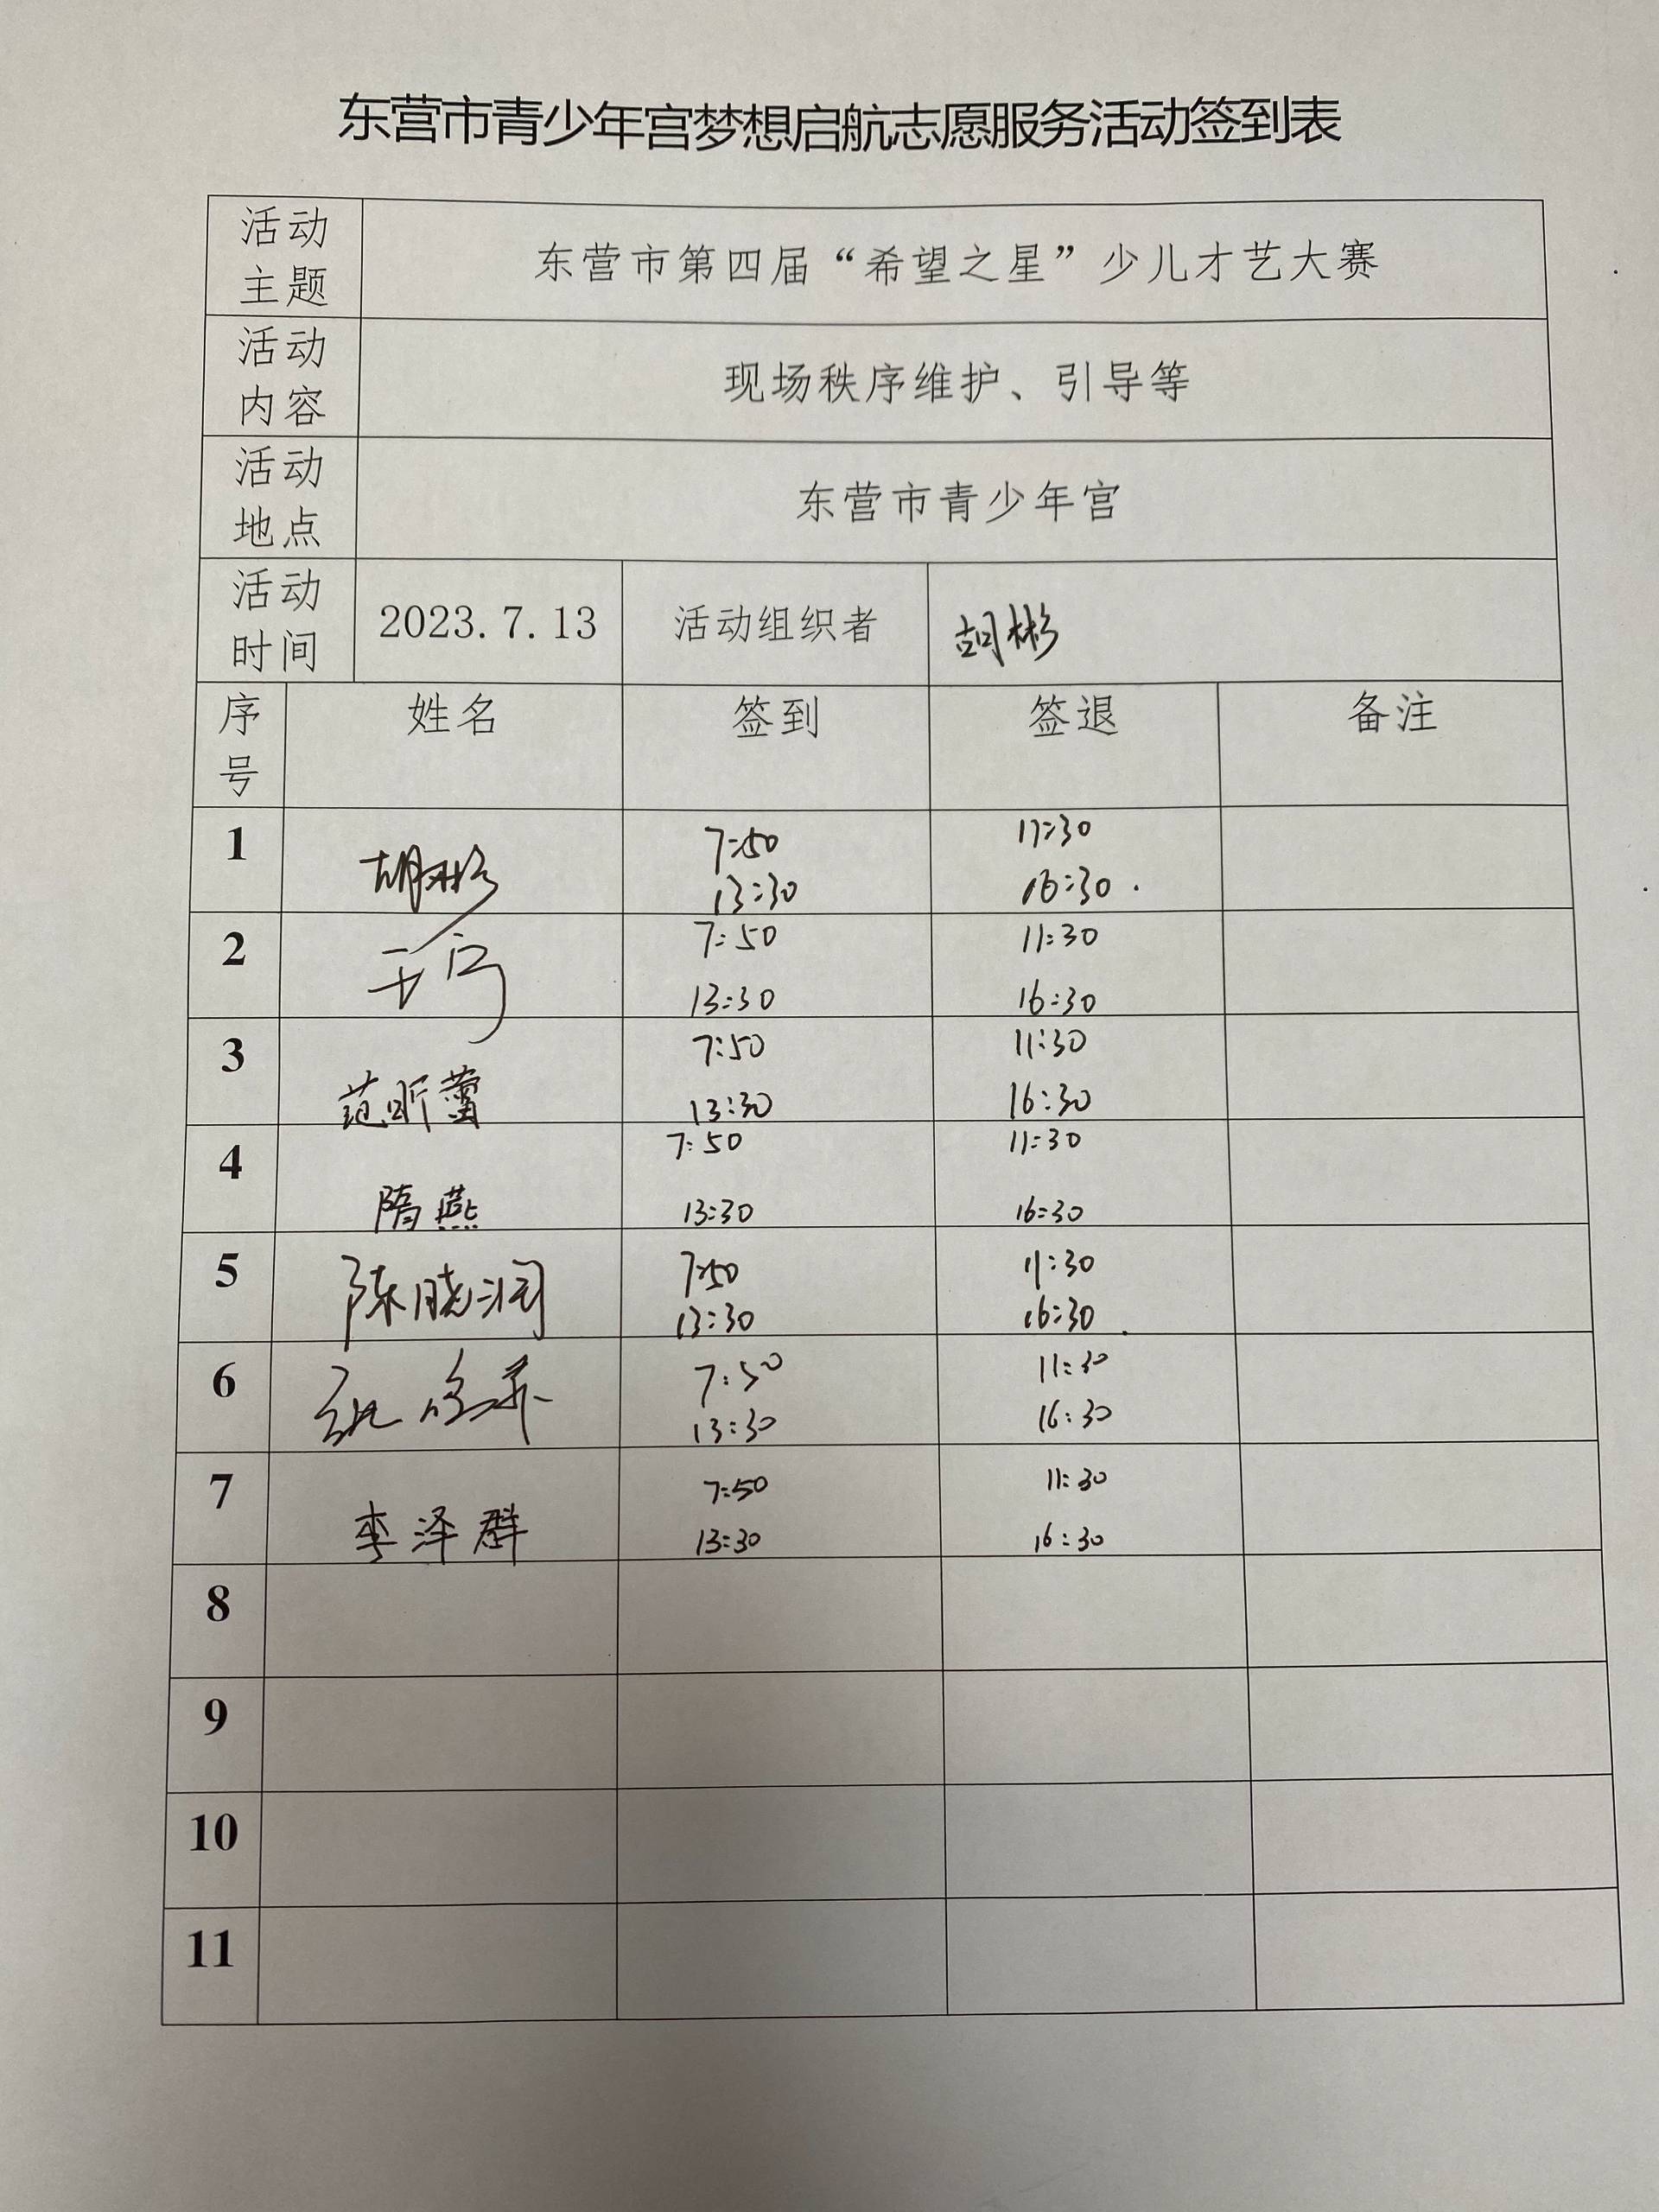 东营市青少年宫梦想启航志愿服务活动签到表
活动主题 东营市第四届“希望之星”少儿才艺大赛
活动内容 现场秩序维护、引导等
活动地点 东营市青少年宫
活动时间 2023.7.13 活动组织者 胡彬
序号 姓名 签到 签退 备注
1 胡彬 7:50 11:30
13:30 16:30
2 7:50 11:30
13:30 16:30
3 范昕蕾 7:50 11:30
13:30 16:30
4 隋燕 7:50 11:30
13:30 16:30
5 陈晓润 7:50 11:30
13:30 16:30
6 7:50 11:30
13:30 16:30
7 李泽群 7:50 11:30
13:30 16:30
8
9
10
11